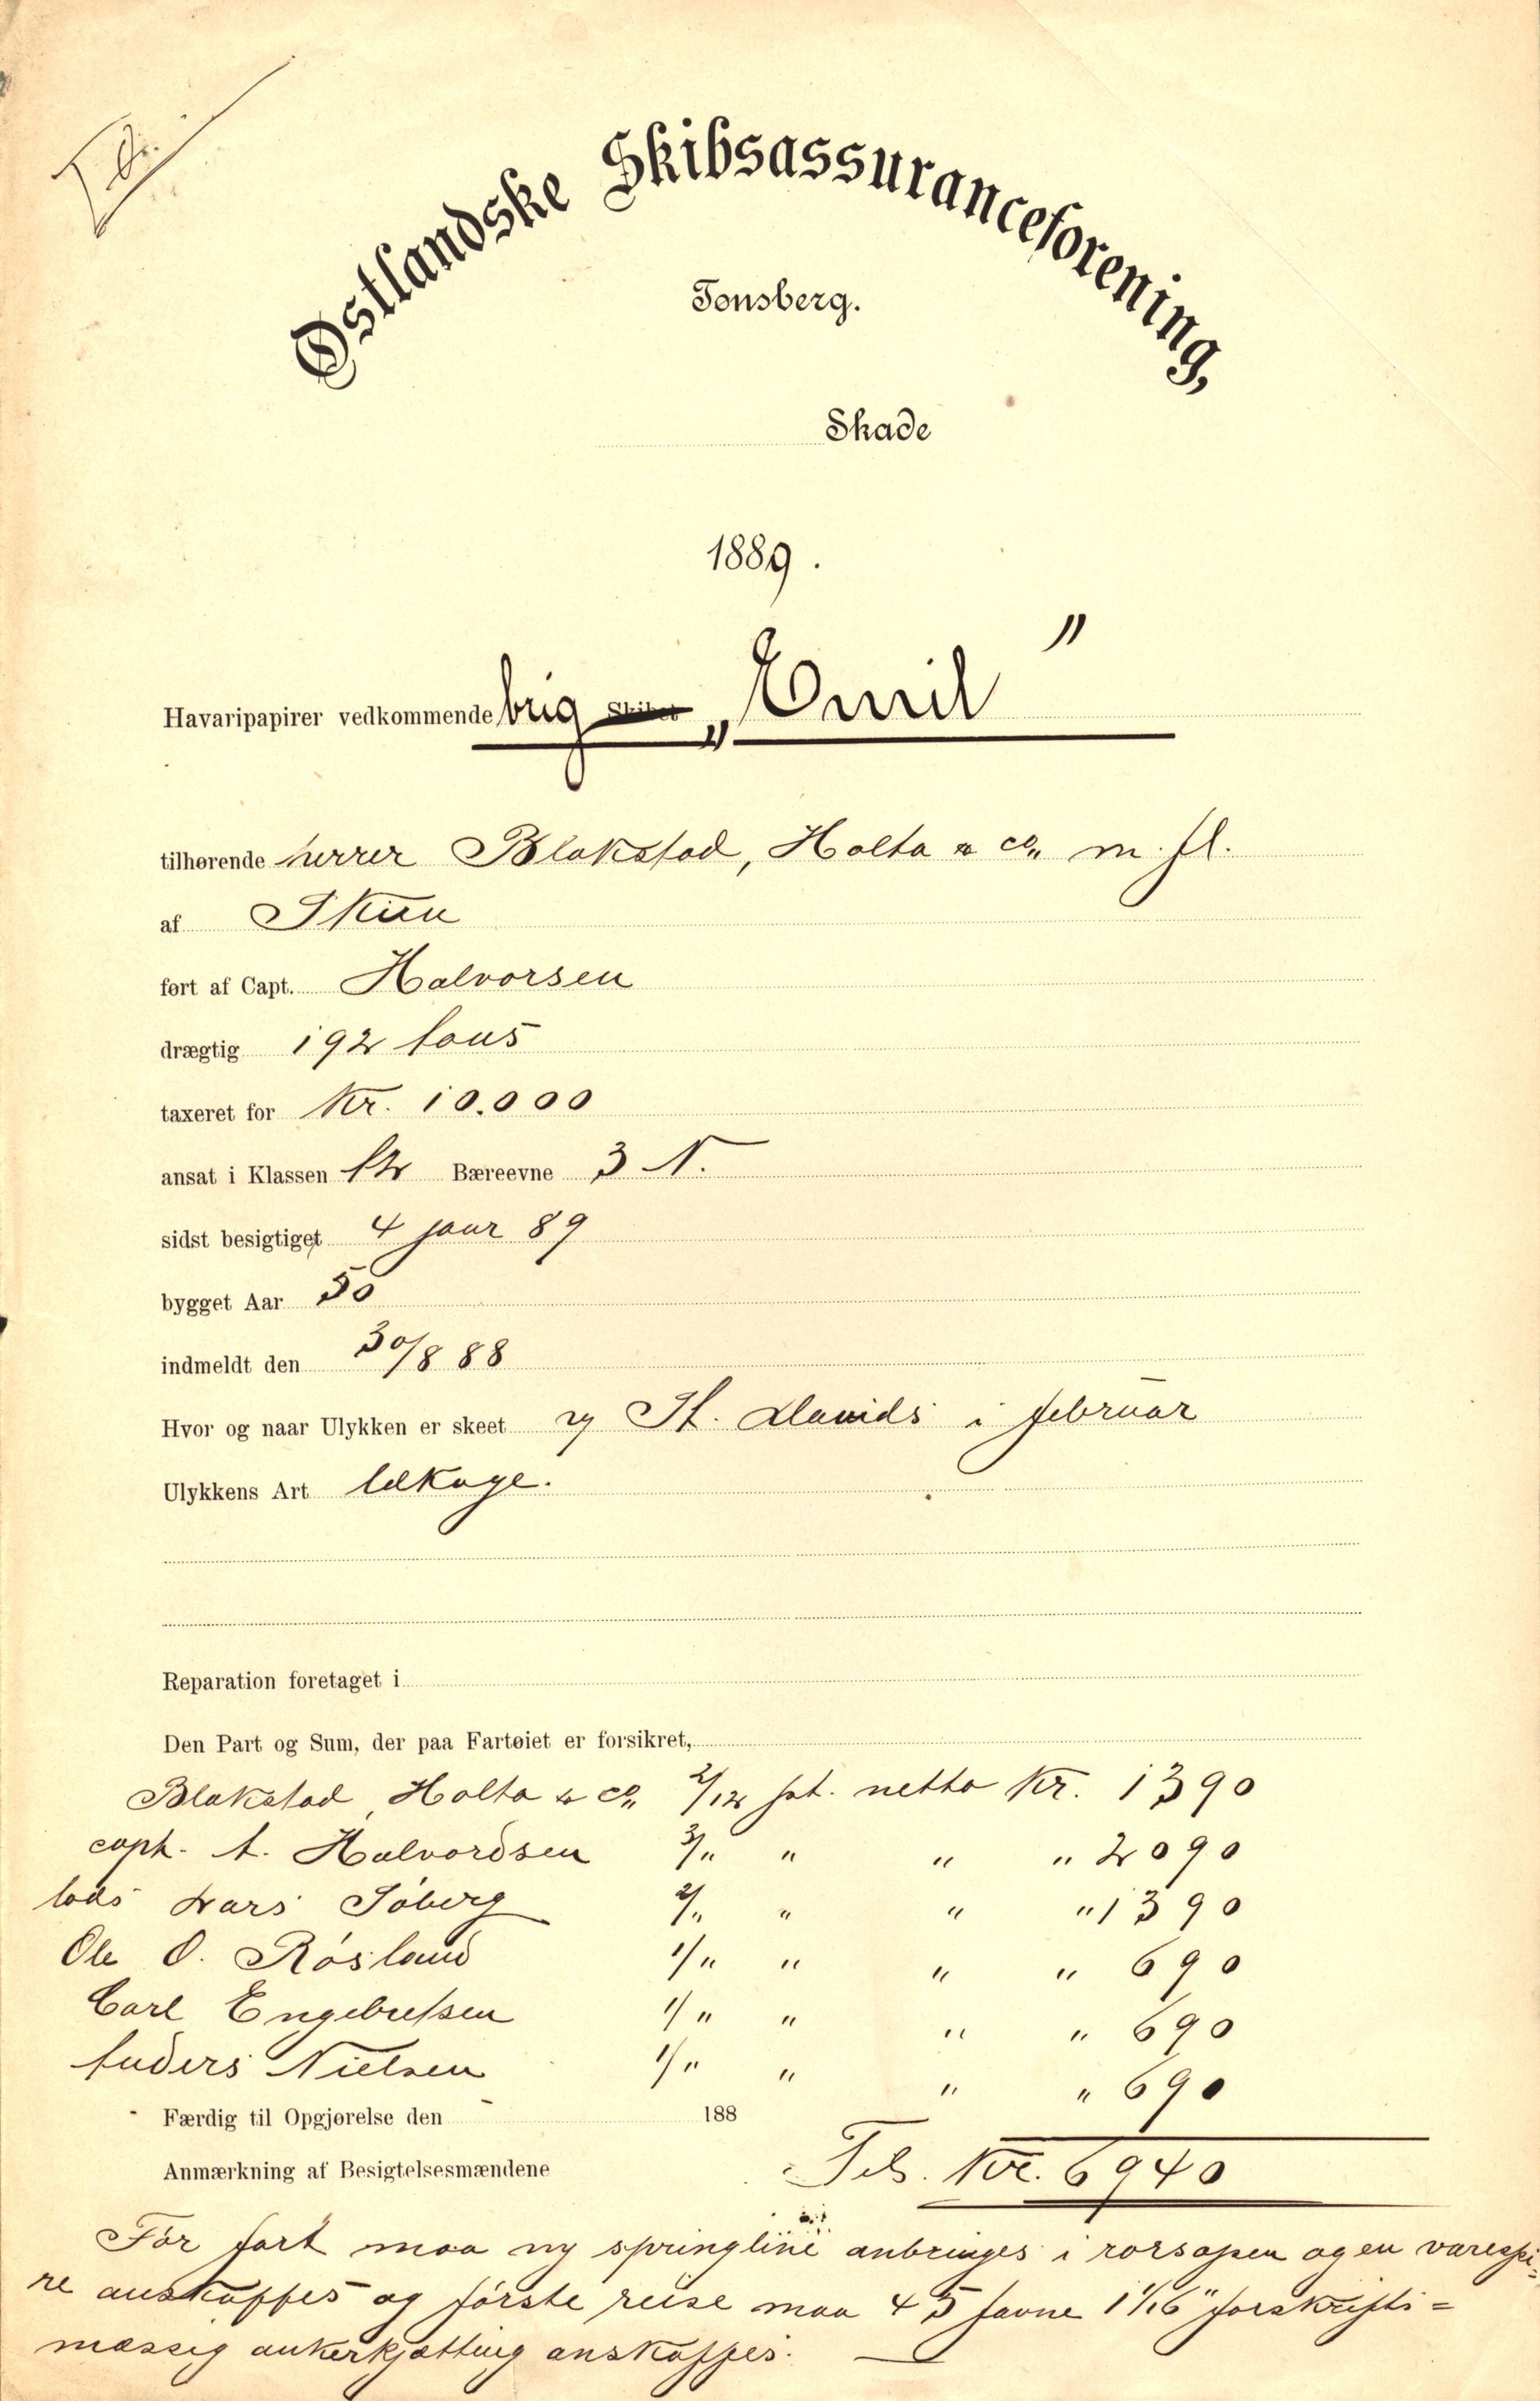 Østlandske Skibsassuranceforening,
Tønsberg.
Skade
1889.
Havaripapirer vedkommende brig Skibet „Emil"
tilhørende herrer Blakstad, Holta & co„ m. fl.
af Skien
ført af Capt. Halvorsen
drægtig 192 tons
taxeret for Kr. 10.000
ansat i Klassen Bæreevne 3 N.
sidst besigtiget 4 jaur 89
bygget Aar 50
indmeldt den 30/8 88
Hvor og naar Ulykken er skeet St. Davids i februar
Ulykkens Art lækage.
Reparation foretaget i
Den Part og Sum, der paa Fartøiet er forsikret,
Blakstad, Holta & co„ 2/12 pt. netto Kr. 1390
capt. A. Halvordsen 3/„ „ „ „ 2090
lods Lars Söberg 2/„ „ „ „ 1390
Ole O. Rösland 1/„ „ „ „ 690
Carl Engebretsen 1/„ „ „ „ 690
Anders Nielsen 1/„ „ „ „ 690
Færdig til Opgjørelse den 188
Anmærkning af Besigtelsesmændene Tils. Kr. 6940
För fart maa ny springline anbringes i rorsapen og en varespi=
re anskaffes og förste reise maa 45 favne 1 1/16" forskrifts=
mæssig ankerkjætting anskaffes.